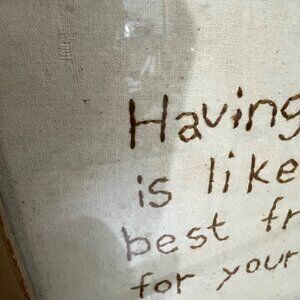 Having
is like
best fr
for your